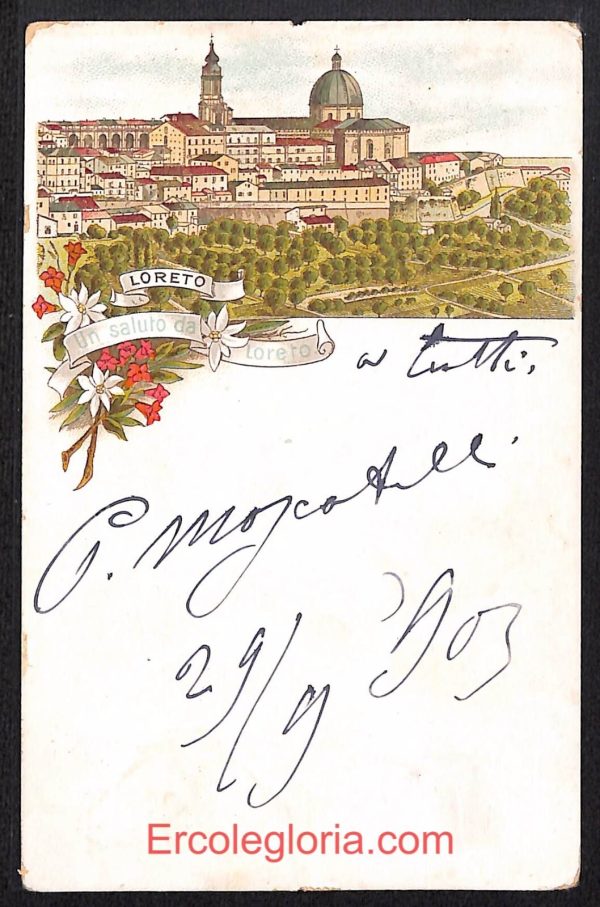 LORETO
Un saluto da Loreto
a tutti.
G. Moscatelli
29/9 903
Ercolegloria.com